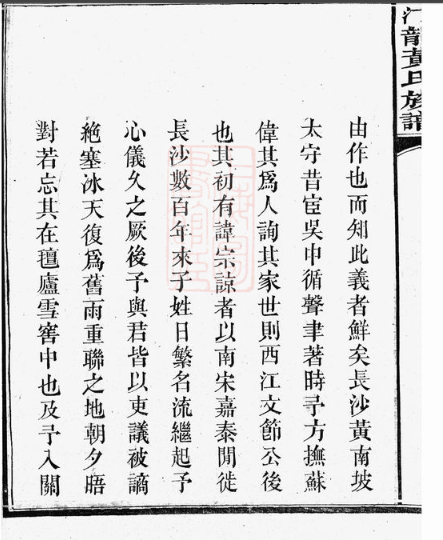 龍黃氏族譜
由作也而知此義者鮮矣長沙黃南坡
太守昔宦吳中循聲聿著時予方撫蘇
偉其爲人詢其家世則西江文節公後
也其初有諱宗諒者以南宋嘉泰閒徙
長沙數百年來子姓日繁名流繼起予
心儀久之厥後予與君皆以吏議被謫
絶塞冰天復爲舊雨重聯之地朝夕晤
對若忘其在氊廬雪窖中也及予入關